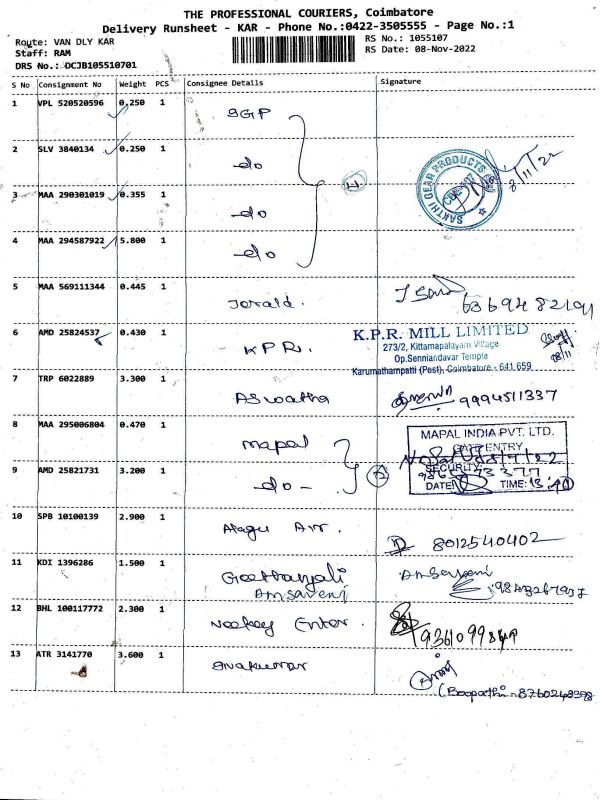 THE PROFESSIONAL COURIERS, Coimbatore
Delivery Runsheet - KAR - Phone No.:0422-3505555 - Page No.:1
Route: VAN DLY KAR
Staff: RAM
DRS No.: DCJB105510701
RS No.: 1055107
RS Date: 08-Nov-2022
S No Consignment No Weight PCS Consignee Details Signature
1 VPL 520520596 0.250 1 SGP
2 SLV 3840134 0.250 1 -do
3 MAA 290301019 0.355 1 -do
4 MAA 294587922 5.800 1 -do
SAKTHI GEAR PRODUCTS
8/11/22
5 MAA 569111344 0.445 1 Jerald.
6 AMD 25824537 0.430 1 KPR.
K.P.R. MILL LIMITED
273/2, Kittamapalayam Village
Op.Senniandavar Temple
Karumathampatti (Post), Coimbatore - 641 659
08/11
7 TRP 6022889 3.300 1 Aswatha 9994511337
8 MAA 295006804 0.470 1 mapal
9 AMD 25821731 3.200 1 -do-
MAPAL INDIA PVT. LTD.
GATE ENTRY
SECURITY
DATE TIME: 13:40
10 SPB 10100139 2.900 1 Alagu Arr. 8012540402
11 KDI 1396286 1.500 1 Geethanjali
Amsaveni
12 BHL 100117772 2.300 1 Enter.
13 ATR 3141770 3.600 1 Sivakumar
(Boopathi - 8760248398